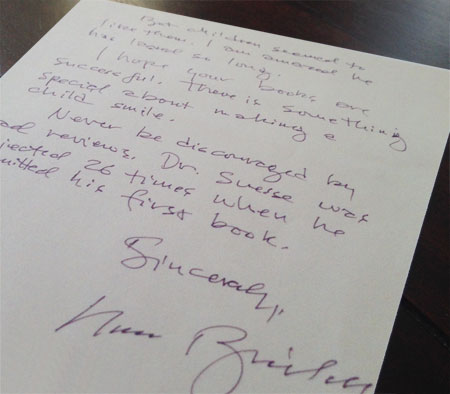 But children seemed to
like them. I am amazed he
has lasted so long.
I hope your books are
successful. There is something
special about making a
child smile.
Never be discouraged by
ad reviews. Dr. Suesse was
jected 26 times when he
mitted his first book.
Sincerely,